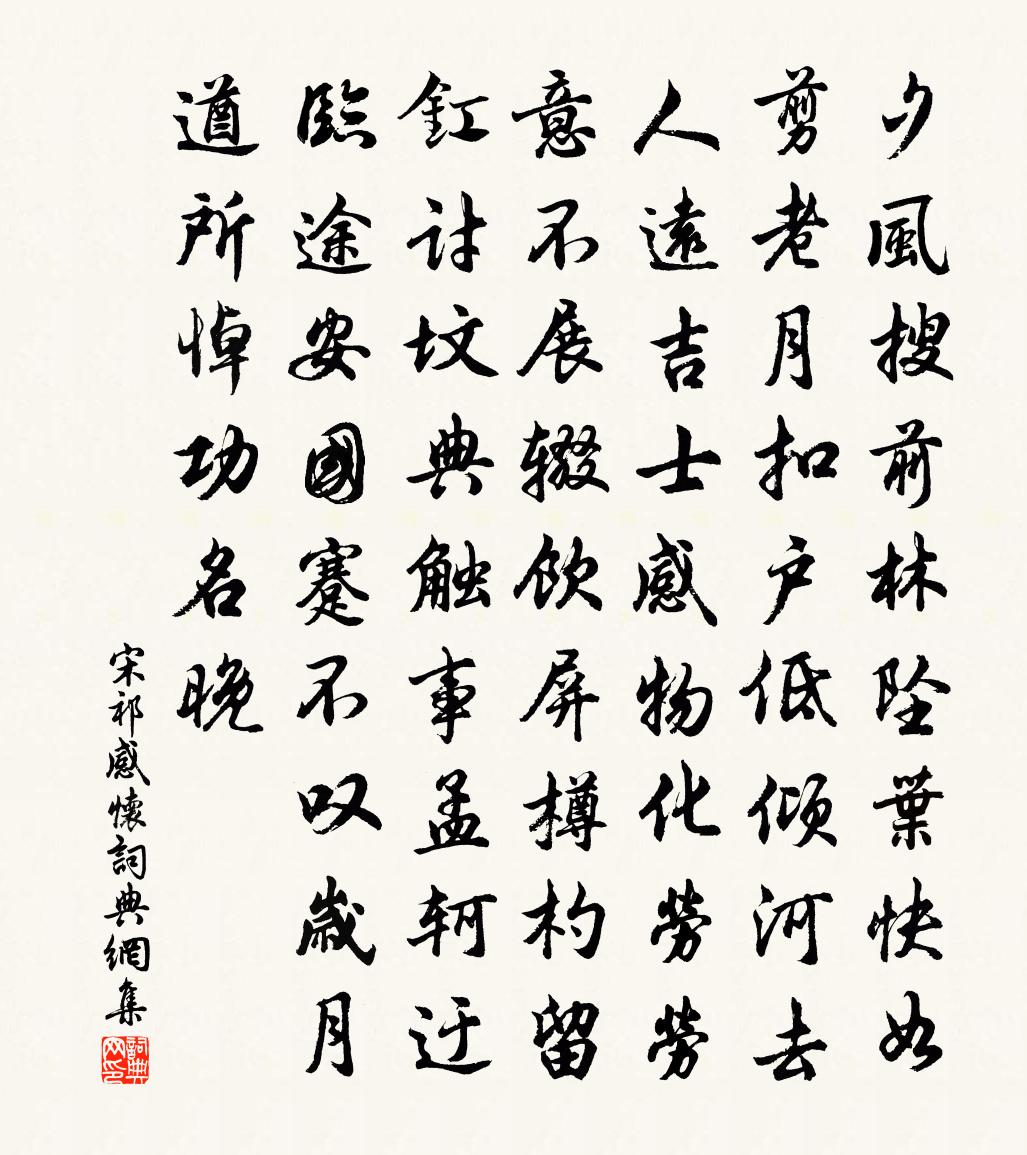 夕風搜前林坠葉快如
剪老月扣户低倾河去
人遠吉士感物化勞勞
意不展辍饮屏樽杓留
釭讨坟典触事孟轲迂
臨途安國蹇不叹歲月
遒所悼功名晚
宋祁感懷詞典網集
詞典网印